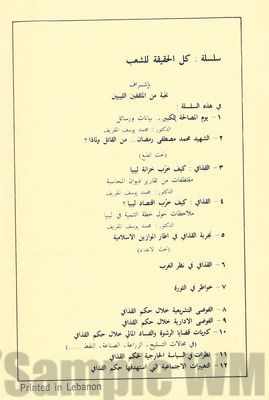 سلسلة : كل الحقيقة للشعب
باشراف
نخبة من المثقفين الليبيين
في هذه السلسلة :
١ – يوم المصالحة الكبير .. بيانات ورسائل
الدكتور : محمد يوسف المقريف
٢ – الشهيد محمد مصطفى رمضان .. من القاتل ولماذا ؟
(تحت الطبع)
٣ – القذافي : كيف خرّب خزانة ليبيا
مقتطفات من تقارير ديوان المحاسبة
الدكتور : محمد يوسف المقريف
٤ – القذافي : كيف خرّب اقتصاد ليبيا ؟
ملاحظات حول خطة التنمية في ليبيا
الدكتور : محمد يوسف المقريف
٥ – تجربة القذافي في اطار الموازين الاسلامية
(تحت الاعداد)
٦ – القذافي في نظر الغرب
٧ – خواطر في الثورة
٨ – الفوضى التشريعية خلال حكم القذافي
٩ – الفوضى الادارية خلال حكم القذافي
١٠ – كبريات قضايا الرشوة والفساد المالي خلال حكم القذافي
(في مجالات التسليح، الزراعة، الصناعة، النفط .....)
١١ – نظرات في السياسة الخارجية لحكم القذافي
١٢ – التغييرات الاجتماعية التي استهدفها حكم القذافي
Sample WM
Printed in Lebanon